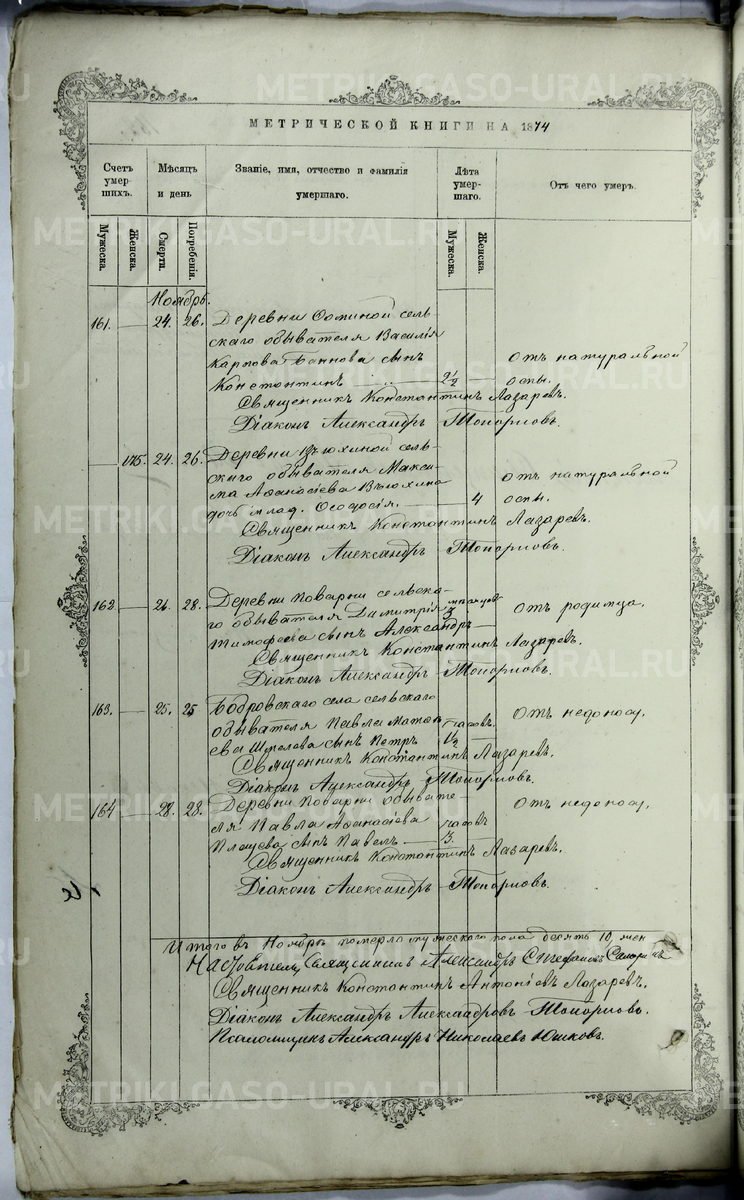 МЕТРИЧЕСКОЙ КНИГИ НА 1874
Счетъ умерших. Мѣсяцъ и день Званіе, имя, отчество и фамилія умершаго. Лѣта умершаго. Отъ чего умеръ.
Мужеска. Женска. Смерти. Погребенія. Мужеска. Женска.
Ноябрь.
161. 24. 26. Деревни Ѳоминой сель-
скаго обывателя Василія
Карпова Баннова сынъ отъ натуральной
Константинъ 2½ оспы.
Священникъ Константинъ Лазаревъ.
Діаконъ Александръ Топорковъ.
175. 24. 26. Деревни Вьюхиной сель-
скаго обывателя Макси- отъ натуральной
ма Аѳанасіева Вьюхина
дочь млад. Ѳеодосія. 4 оспы.
Священникъ Константинъ Лазаревъ.
Діаконъ Александръ Топорковъ.
162 26. 28. Деревни Поварни сельска-
го обывателя Димитрія мѣсяцов. Отъ родимца.
сынъ Александръ 3
Священникъ Константинъ Лазаревъ.
Діаконъ Александръ Топорковъ.
163. 25. 25 Бобровскаго села сельскаго
обывателя Павла часовъ. Отъ недоносу.
сынъ Петръ 1½
Священникъ Константинъ Лазаревъ.
Діаконъ Александръ Топорковъ.
164 28. 28. Деревни Поварни обывате-
ля Павла Аѳанасіева часовъ Отъ недоносу.
сынъ Павелъ 3.
Священникъ Константинъ Лазаревъ.
Діаконъ Александръ Топорковъ.
Итого въ Ноябрѣ померло мужескаго пола десять 10, жен
Настоятель Священникъ Александръ Стефановъ
Священникъ Константинъ Антоніевъ Лазаревъ.
Діаконъ Александръ Александровъ Топорковъ.
Псаломщикъ Александръ Николаевъ Юшковъ.
METRIKI.GASO-URAL.RU